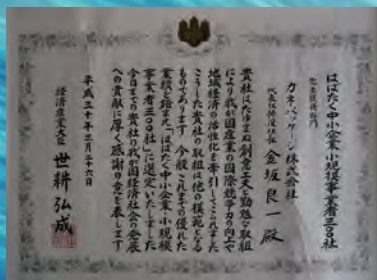 はばたく中小企業・小規模事業者三〇〇社
カネパッケージ株式会社
代表取締役社長 金坂良一殿
貴社はたゆまぬ創意工夫と勤勉な取組
により我が国産業の国際競争力の向上や
地域経済の活性化を牽引してこられました
こうした貴社の取組は他の模範となる
ものであります 今般これまでの優れた
業績を踏まえ「はばたく中小企業・小規模
事業者三〇〇社」に選定いたしました
今日までの貴社の我が国経済社会の発展
への貢献に厚く感謝の意を表します
平成三十年三月二十六日
経済産業大臣 世耕弘成